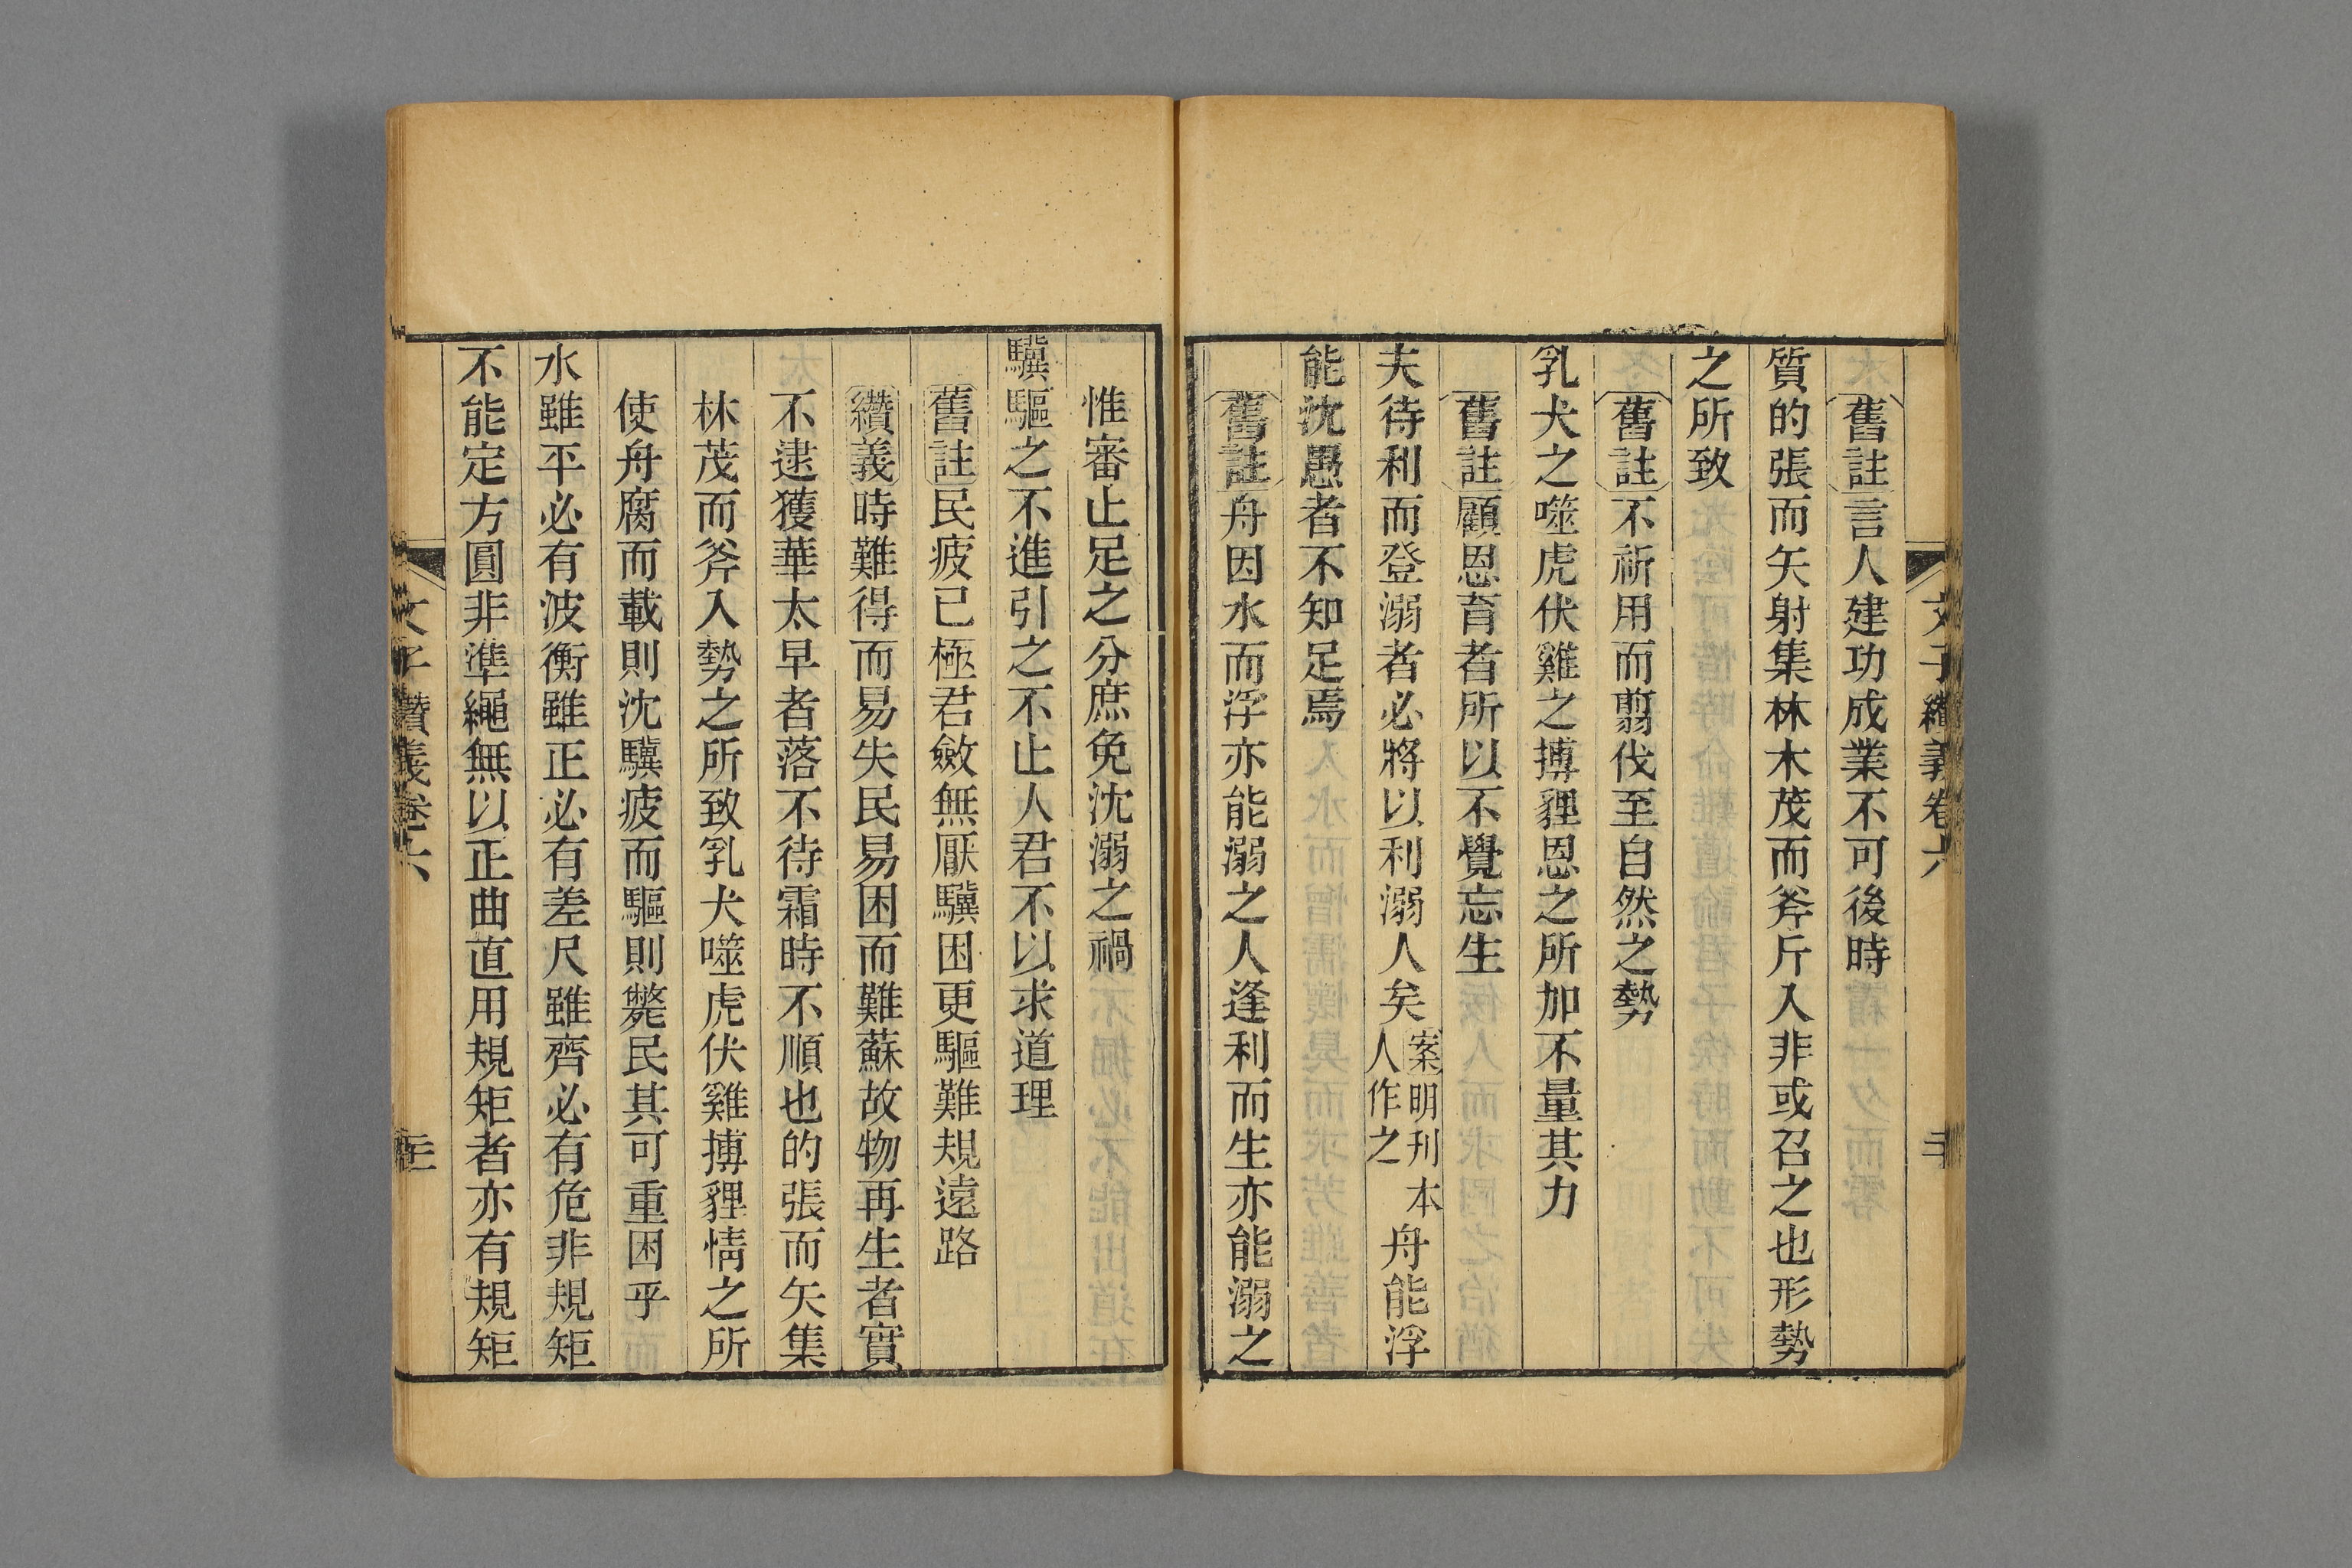 文子纘義卷六
舊註言人建功成業不可後時
質的張而矢射集林木茂而斧斤入非或召之也形勢
之所致
舊註不祈用而翦伐至自然之勢
乳犬之噬虎伏雞之搏貍恩之所加不量其力
舊註顧恩育者所以不覺忘生
夫待利而登溺者必將以利溺人矣案明刋本人作之舟能浮
能沈愚者不知足焉
舊註舟因水而浮亦能溺之人逢利而生亦能溺之
惟審止足之分庶免沈溺之禍
驥驅之不進引之不止人君不以求道理
舊註民疲已極君斂無厭驥困更驅難規遠路
纘義時難得而易失民易困而難蘇故物再生者實
不逮獲華太早者落不待霜時不順也的張而矢集
林茂而斧入勢之所致乳犬噬虎伏雞搏貍情之所
使舟腐而載則沈驥疲而驅則斃民其可重困乎
水雖平必有波衡雖正必有差尺雖齊必有危非規矩
不能定方圓非準繩無以正曲直用規矩者亦有規矩
文子纘義卷六